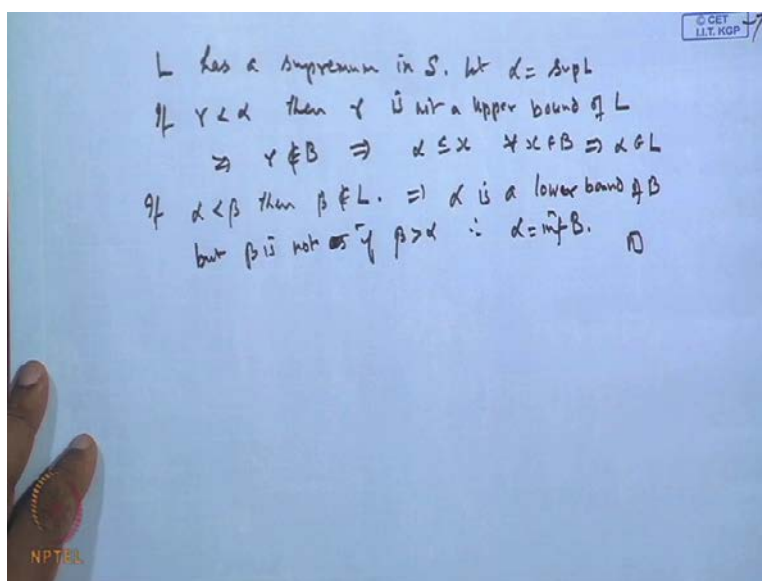 © CET
I.I.T. KGP
L has a supremum in S. Let α = Sup L
If γ < α then γ is not a upper bound of L
⇒ γ ∉ B ⇒ α ≤ x ∀ x ∈ B ⇒ α ∈ L
If α < β then β ∉ L. ⇒ α is a lower bound of B
but β is not if β > α ∴ α = inf B.
NPTEL